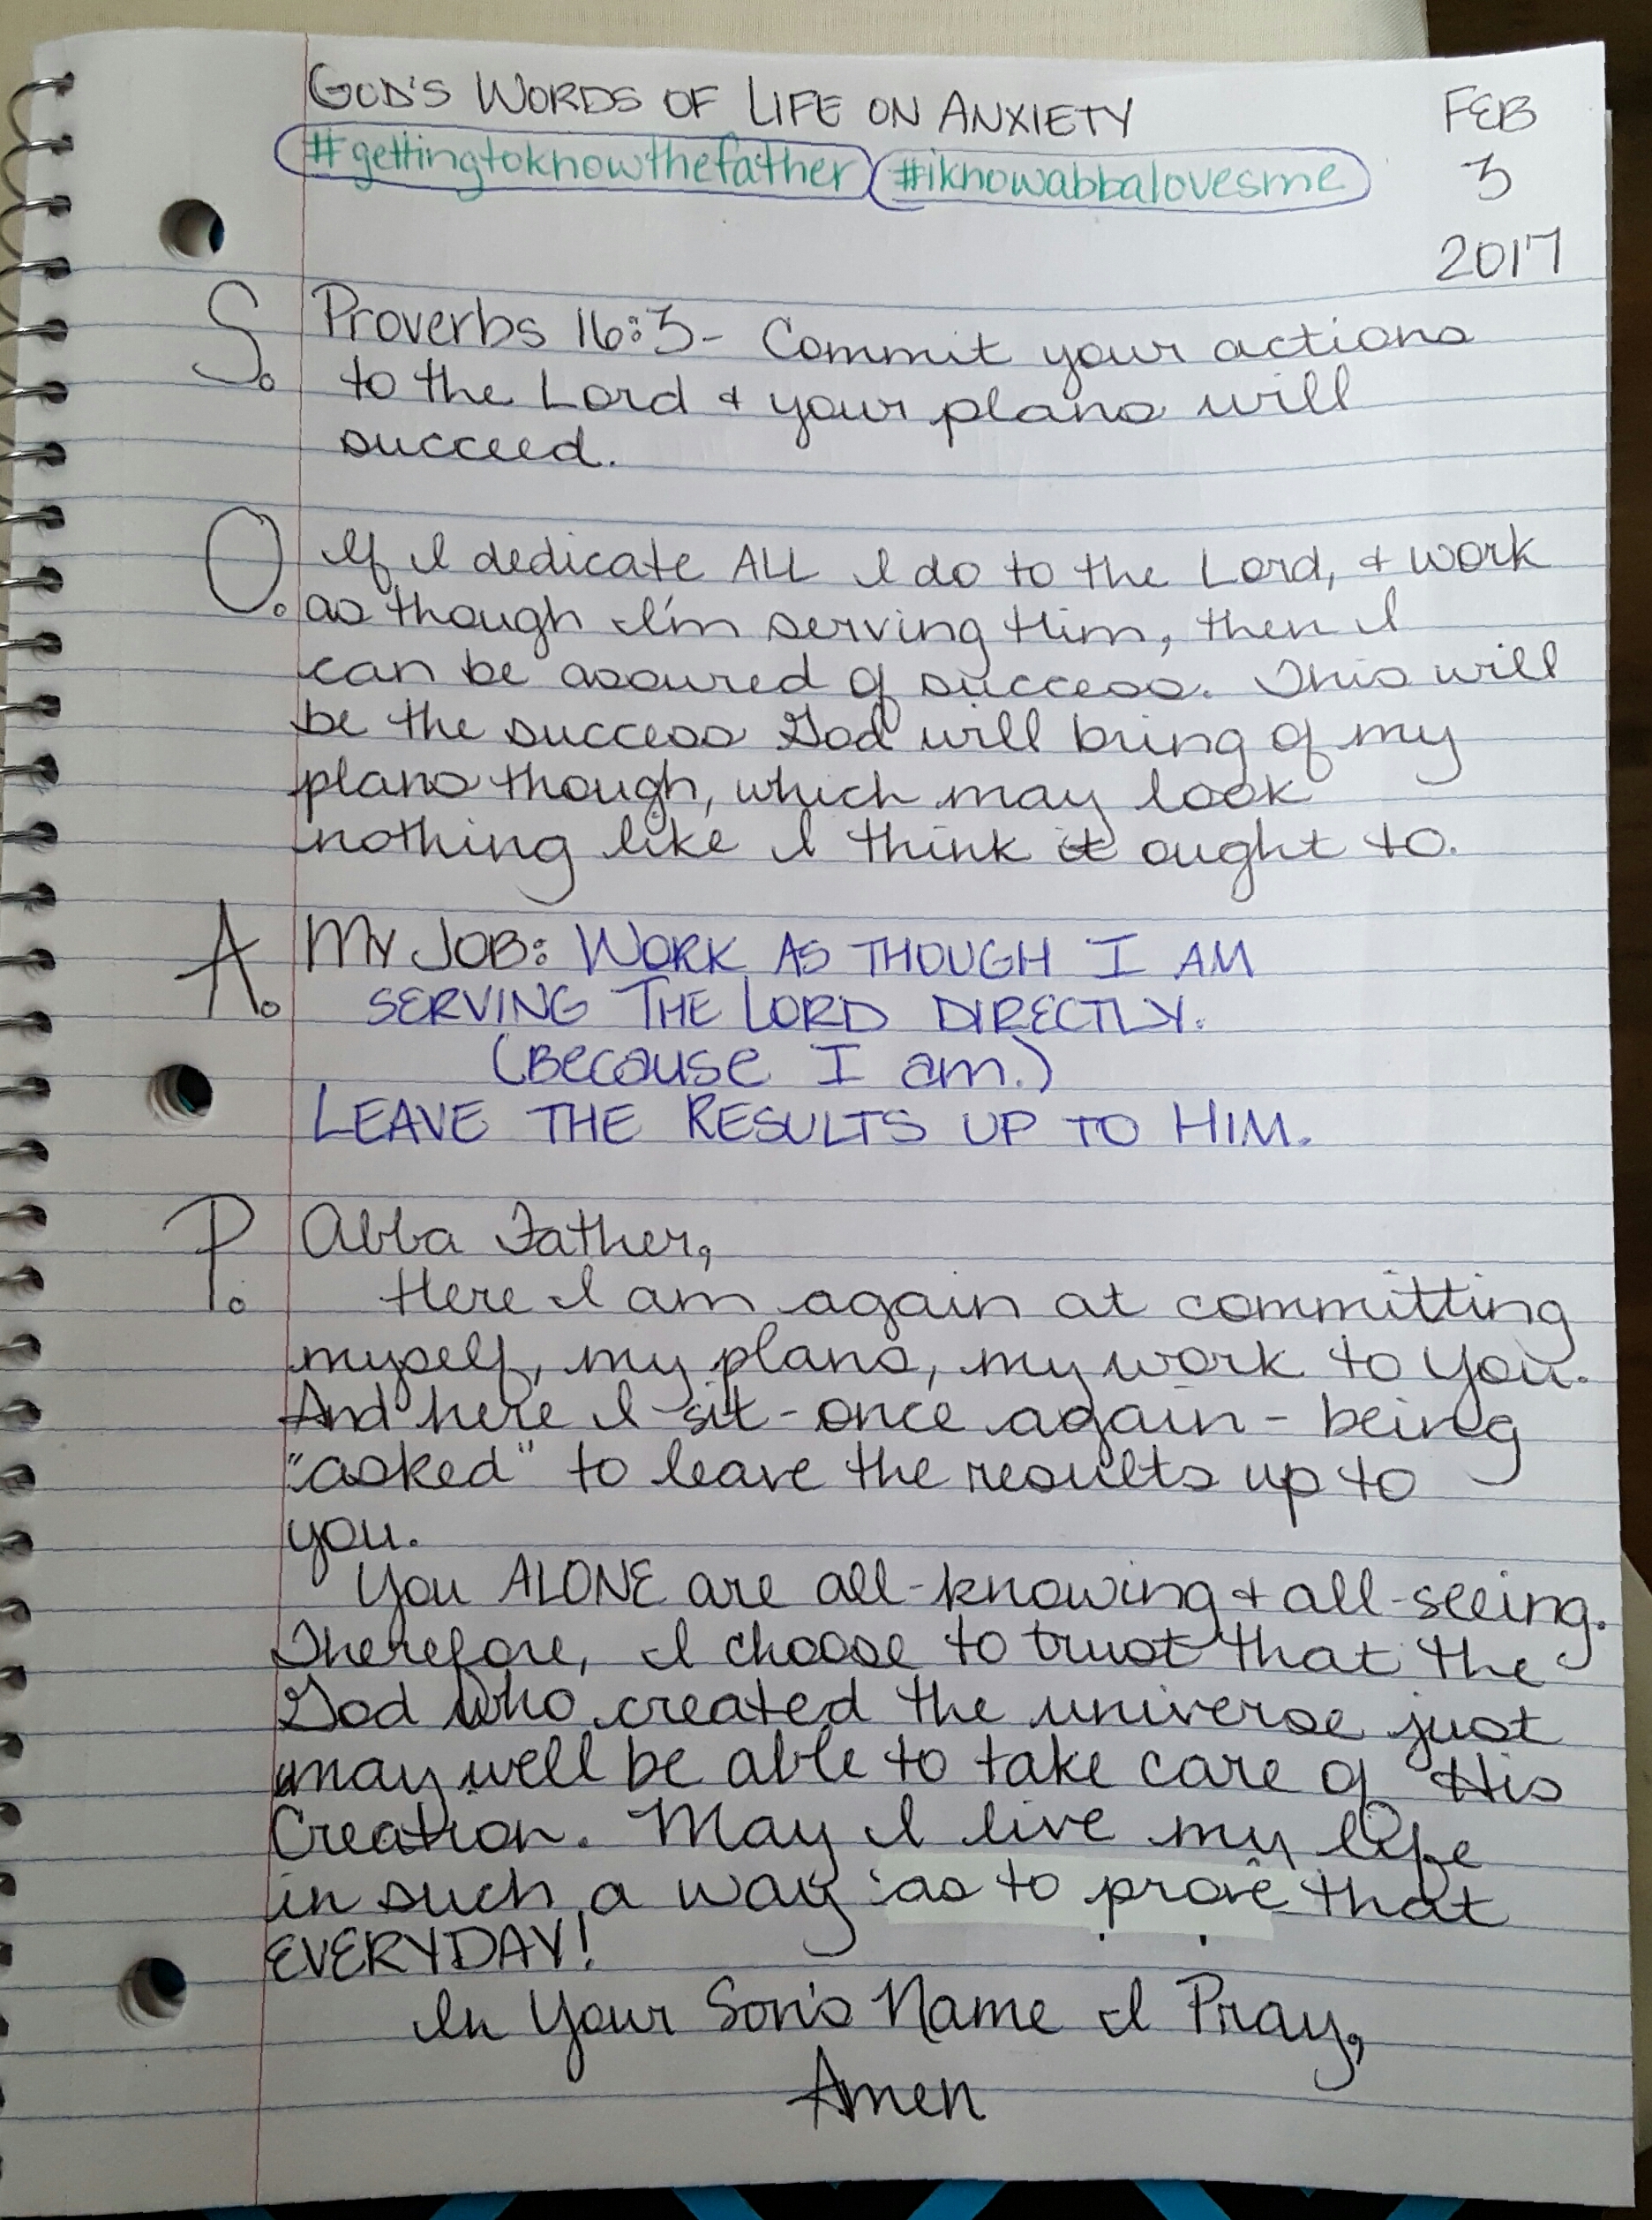 GOD'S WORDS OF LIFE ON ANXIETY
#gettingtoknowthefather #iknowabbalovesme
FEB
3
2017
S. Proverbs 16:3- Commit your actions
to the Lord + your plans will
succeed.
O. If I dedicate ALL I do to the Lord, + work
as though I'm serving Him, then I
can be assured of success. This will
be the success God will bring of my
plans though, which may look
nothing like I think it ought to.
A. MY JOB: WORK AS THOUGH I AM
SERVING THE LORD DIRECTLY.
(Because I am.)
LEAVE THE RESULTS UP TO HIM.
P. Abba Father,
Here I am again at committing
myself, my plans, my work to You.
And here I sit - once again - being
"asked" to leave the results up to
you.
You ALONE are all-knowing + all-seeing.
Therefore, I choose to trust that the
God who created the universe just
may well be able to take care of His
Creation. May I live my life
in such a way as to prove that
EVERYDAY!
In Your Son's Name I Pray,
Amen